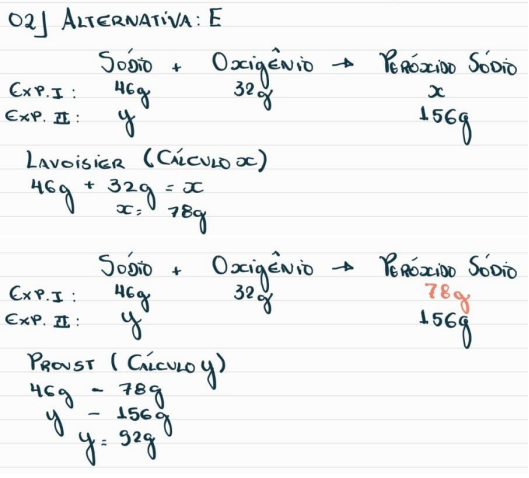 02] ALTERNATIVA: E
SÓDIO + OXIGÊNIO → PERÓXIDO SÓDIO
EXP. I: 46g 32g x
EXP. II: y 156g
LAVOISIER (CÁLCULO x)
46g + 32g = x
x = 78g
SÓDIO + OXIGÊNIO → PERÓXIDO SÓDIO
EXP. I: 46g 32g 78g
EXP. II: y 156g
PROUST (CÁLCULO y)
46g - 78g
y - 156g
y = 92g